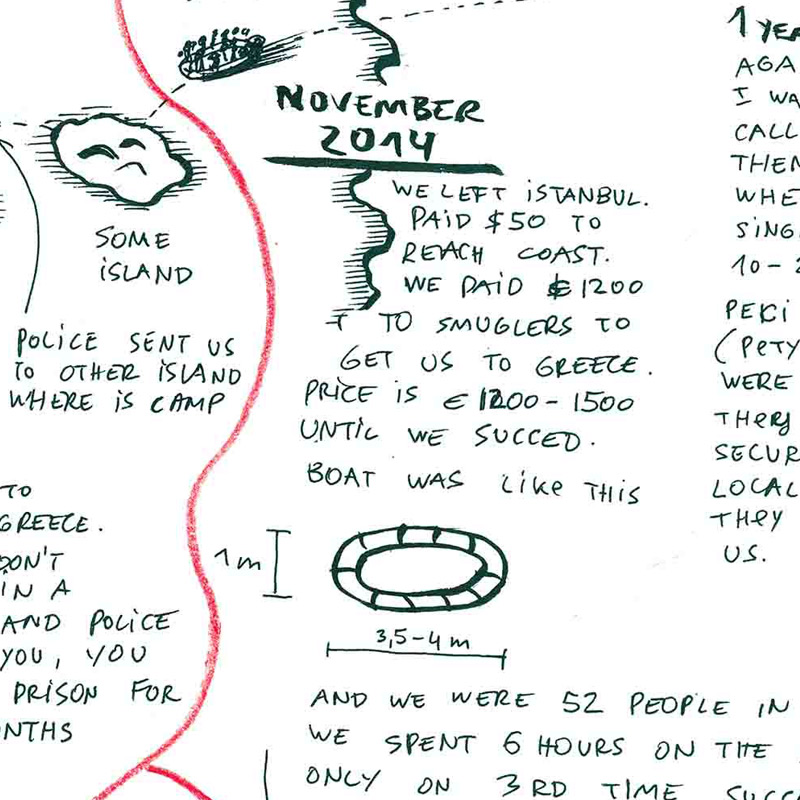 NOVEMBER
2014
WE LEFT ISTANBUL.
PAID $50 TO
REACH COAST.
WE PAID € 1200
TO SMUGLERS TO
GET US TO GREECE.
PRICE IS € 1200-1500
UNTIL WE SUCCED.
BOAT WAS LIKE THIS
1m
3,5-4 m
AND WE WERE 52 PEOPLE IN
WE SPENT 6 HOURS ON THE
ONLY ON 3RD TIME
SOME
ISLAND
POLICE SENT US
TO OTHER ISLAND
WHERE IS CAMP
TO
GREECE.
DON'T
IN A
AND POLICE
YOU, YOU
PRISON FOR
1
I
10-
PEKI
WERE
THEY
US.